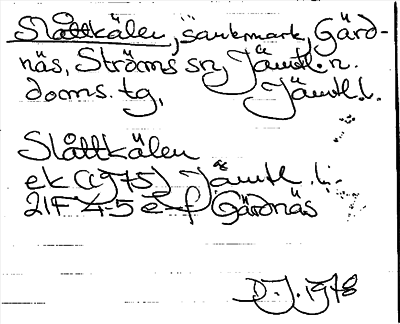 Slåttkälen, sankmark, Gärd-
näs, Ströms sn, Jämtl. n.
doms. tg, Jämtl. l.
Slåttkälen
ek (1975) Jämtl. l.
21F 4-5 e-f Gärdnäs
D. J. 1978